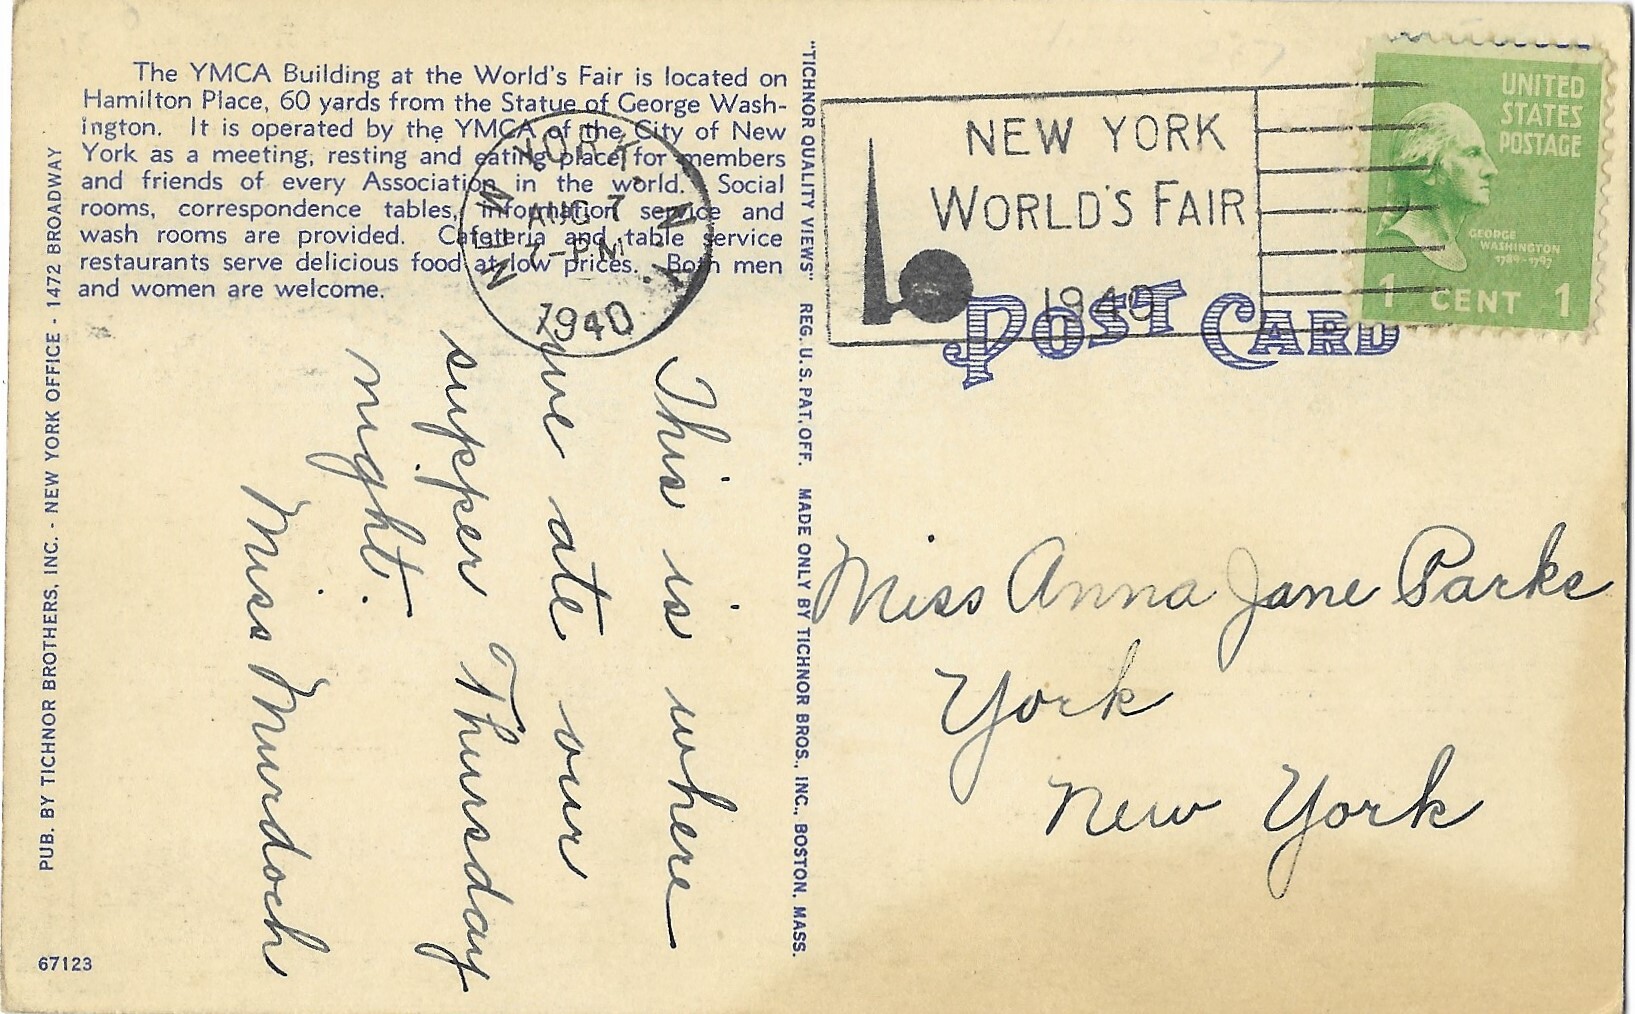 The YMCA Building at the World's Fair is located on
Hamilton Place, 60 yards from the Statue of George Wash-
ington. It is operated by the YMCA of the City of New
York as a meeting, resting and eating place for members
and friends of every Association in the world. Social
rooms, correspondence tables, information service and
wash rooms are provided. Cafeteria and table service
restaurants serve delicious food at low prices. Both men
and women are welcome.
NEW YORK, N.Y.
AUG 7
7-PM
1940
This is where
we ate our
supper Thursday
night.
Miss Murdoch
PUB. BY TICHNOR BROTHERS, INC. - NEW YORK OFFICE - 1472 BROADWAY
67123
"TICHNOR QUALITY VIEWS" REG. U. S. PAT. OFF. MADE ONLY BY TICHNOR BROS., INC., BOSTON, MASS.
NEW YORK
WORLD'S FAIR
1940
UNITED
STATES
POSTAGE
GEORGE
WASHINGTON
1789-1797
1 CENT 1
POST CARD
Miss Anna Jane Parks
York
New York